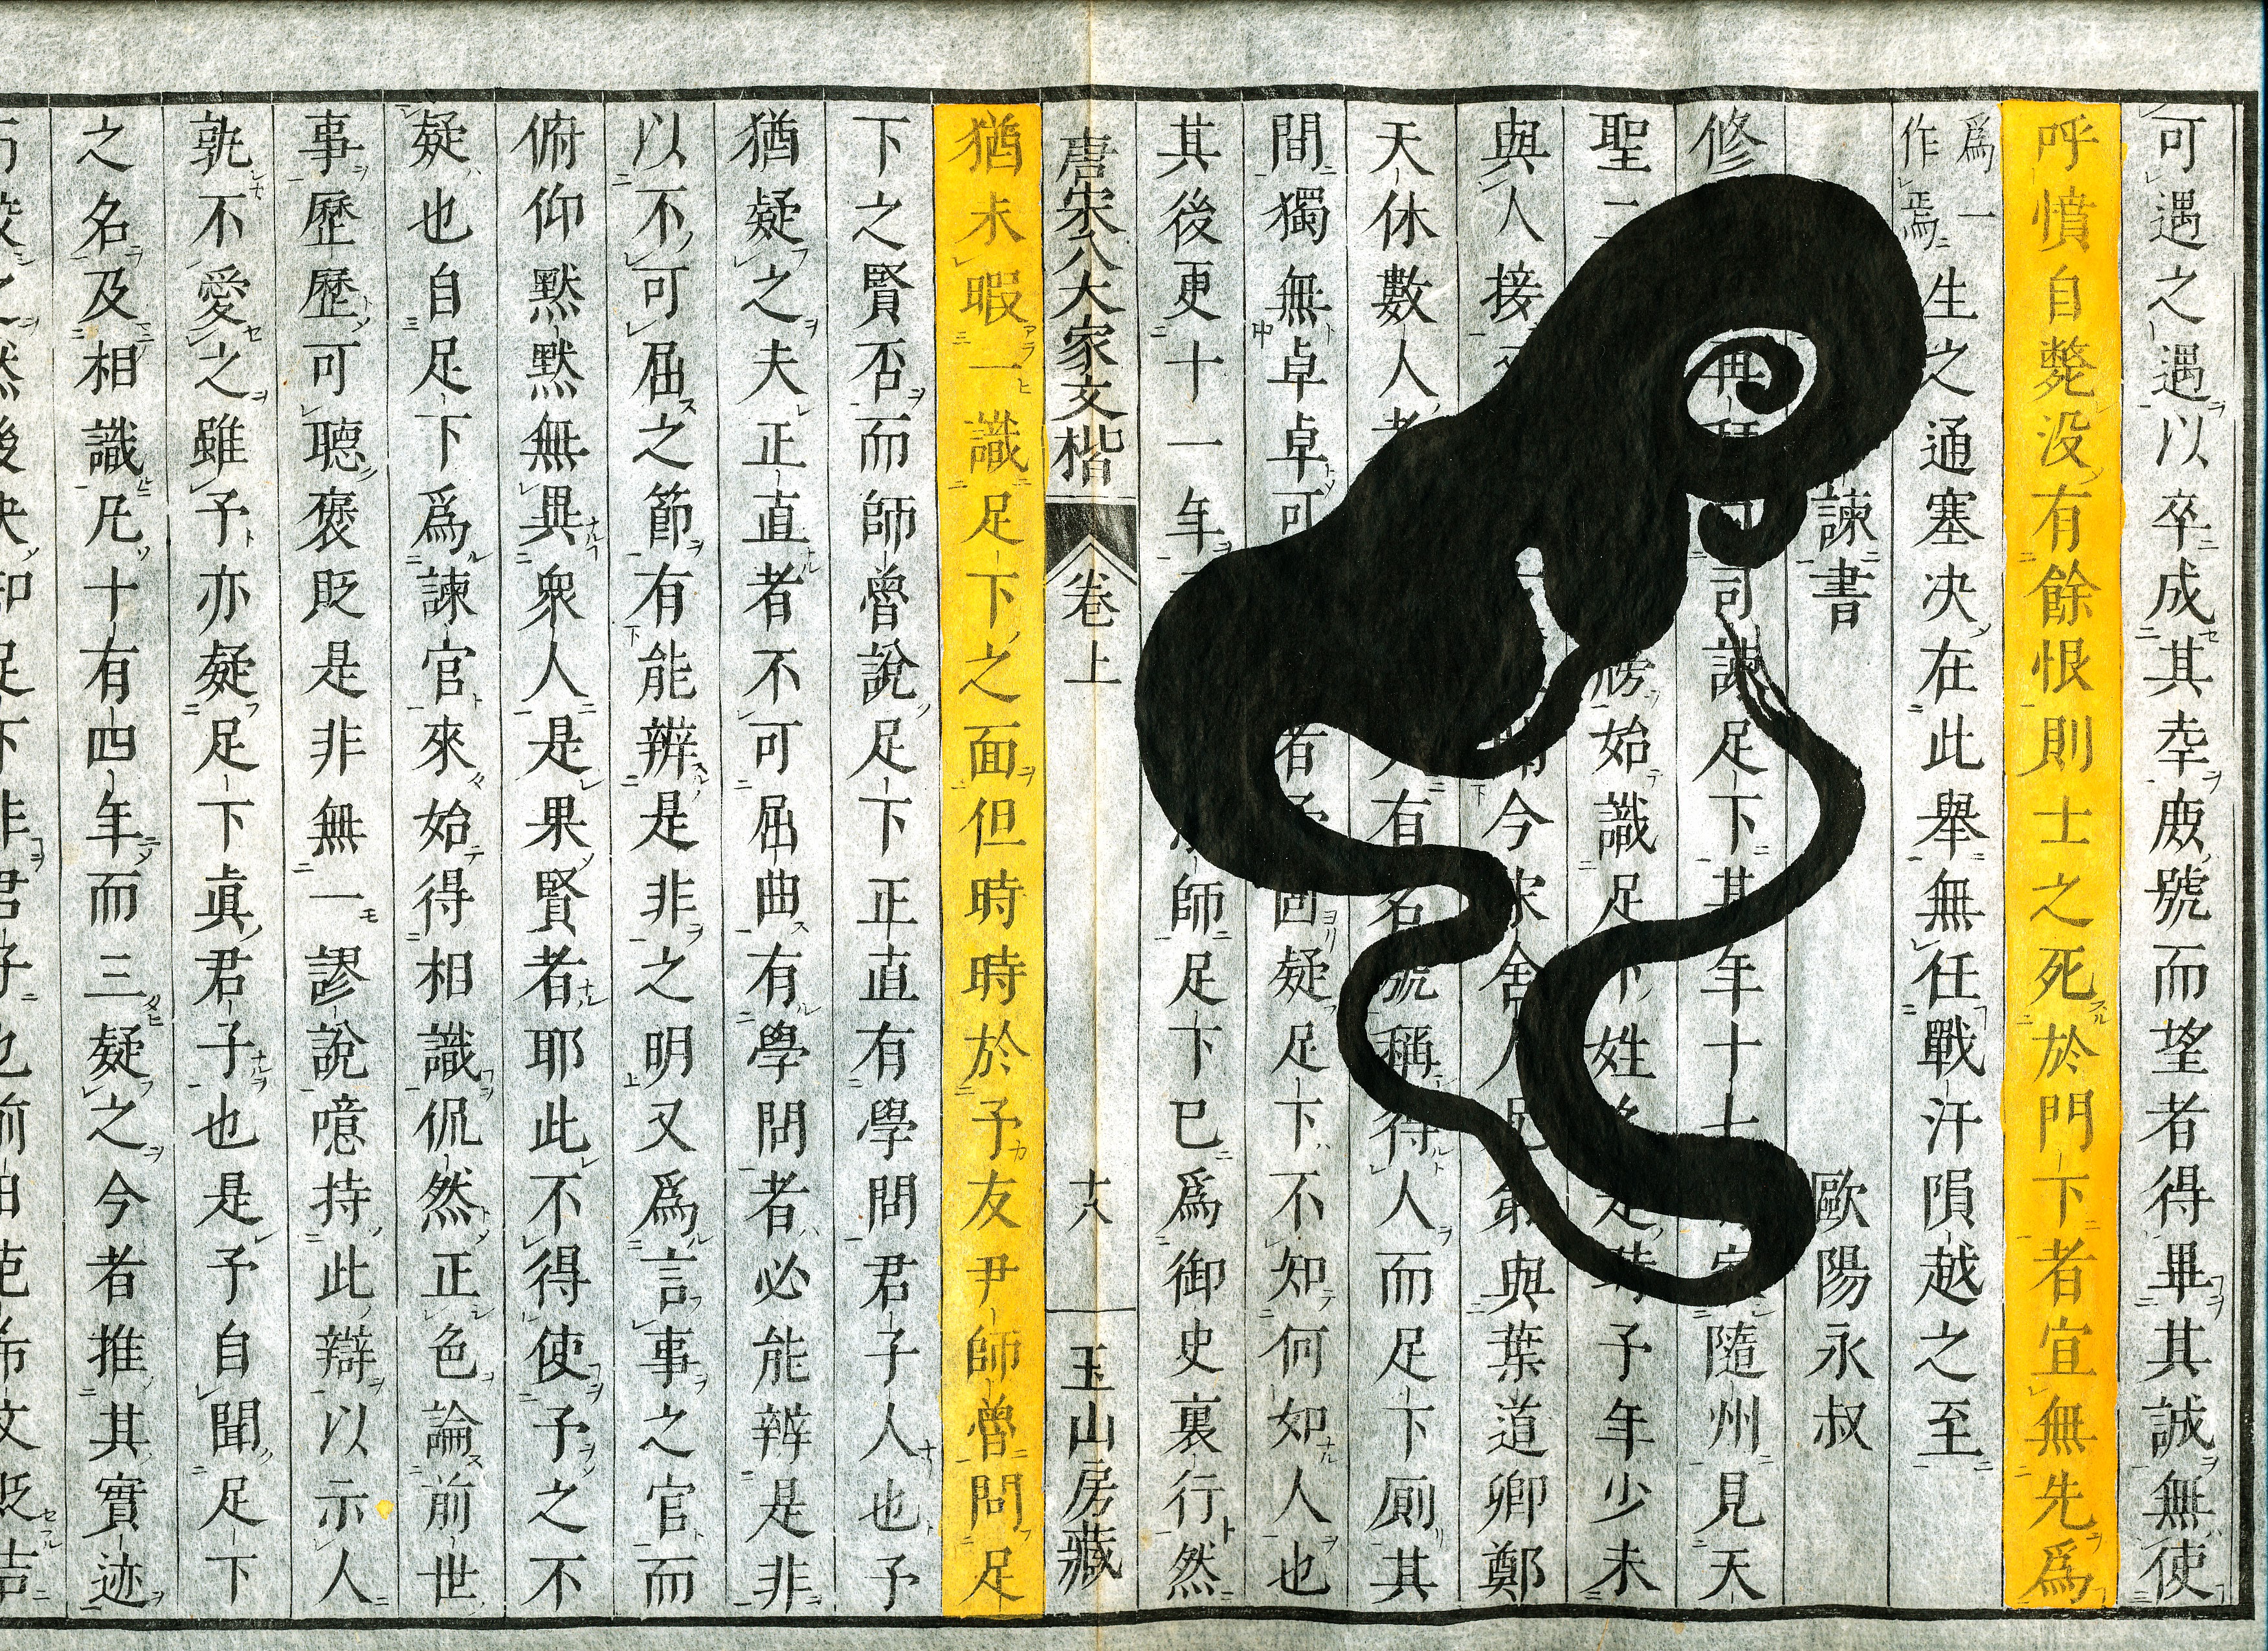 可遇之遇以卒成其幸庶號而望者得畢其誠無使
呼憤自斃没有餘恨則士之死於門下者宜無先爲
爲一作焉生之通塞決在此舉無任戰汗隕越之至
諫書 歐陽永叔
修 再拜 司諫足下某年十七 隨州見天
聖二 牓始識足下姓名是時予年少未
與人接 今宋舍人兄弟與葉道卿鄭
天休數人者 有名號稱得人而足下厠其
間獨無卓卓可 者予固疑足下不知何如人也
其後更十一年 師足下已爲御史裏行然
唐宋八大家文楷 卷上 十八 玉山房藏
猶未暇一識足下之面但時時於予友尹師魯問足
下之賢否而師魯說足下正直有學問君子人也予
猶疑之夫正直者不可屈曲有學問者必能辨是非
以不可屈之節有能辨是非之明又爲言事之官而
俯仰默默無異衆人是果賢者耶此不得使予之不
疑也自足下爲諫官來始得相識侃然正色論前世
事歷歷可聽褒貶是非無一謬說噫持此辯以示人
孰不愛之雖予亦疑足下眞君子也是予自聞足下
之名及相識凡十有四年而三疑之今者推其實迹